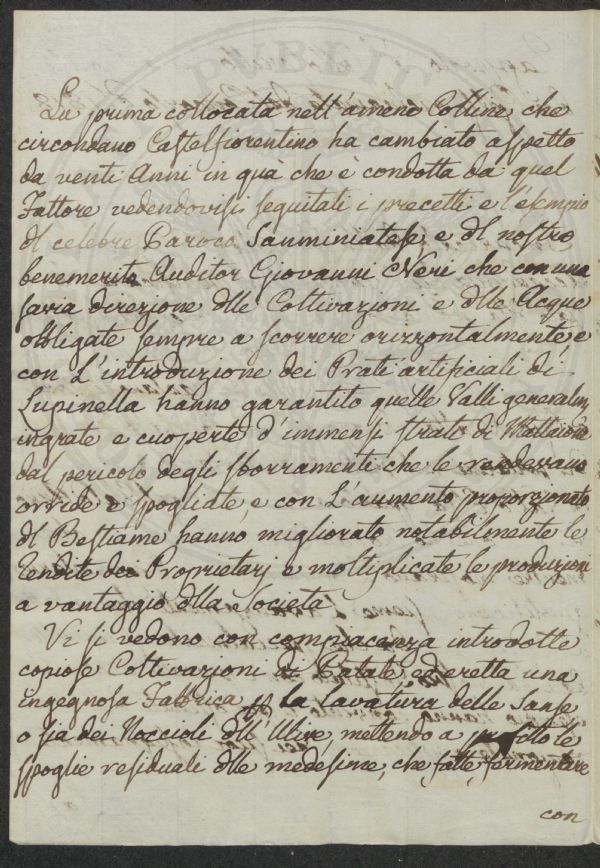 PVBLIC
La prima collocata nell'amene Colline che
circondano Castelfiorentino ha cambiato aspetto
da venti Anni in quà che è condotta da quel
Fattore vedendovisi seguitati i precetti e l'esempio
dl celebre Paroco Sanminiatese e dl nostro
benemerito Auditor Giovanni Neri che con una
savia direzione dlle Coltivazioni e dlle Acque
obbligate sempre a scorrere orizzontalmente, e
con L'introduzione dei Prati artificiali di
Lupinella hanno garantito quelle Valli generalm
ingrate e cuoperte d'immensi strati di Mattaione
dal pericolo degli sborramenti che le rendevano
orride e spogliate, e con L'aumento proporzionato
dl Bestiame hanno migliorato notabilmente le
Rendite dei Proprietarj e moltiplicate le produzioni
a vantaggio dlla Società
Vi si vedono con compiacenza introdotte
copiose Coltivazioni di Patate ed eretta una
ingegnosa Fabbrica p la lavatura delle Sanse
o sia dei Noccioli dll'Ulive, mettendo a profitto le
spoglie residuali dlle medesime, che fatte fermentare
con